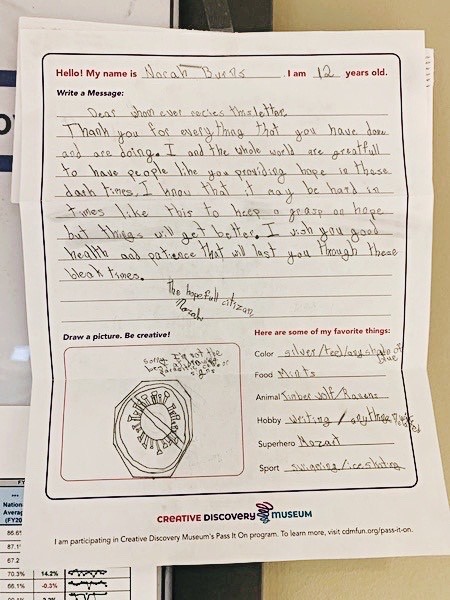 Hello! My name is Norah Burns . I am 12 years old.
Write a Message:
Dear whom ever recives this letter,
Thank you for everything that you have done
and are doing. I and the whole world are greatfull
to have people like you providing hope in these
dark times, I know that it may be hard in
times like this to keep a grasp on hope
but things will get better. I wish you good
health and patience that will last you through these
bleak times.
The hopefull citizan,
Norah
Draw a picture. Be creative!
sorry I'm not the
best at
Here are some of my favorite things:
Color silver/teel/any shade of blue
Food Mints
Animal Timber wolf/Ravens
Hobby writing / anything
Superhero Mozart
Sport swimming/ice skating
CREATIVE DISCOVERY MUSEUM
I am participating in Creative Discovery Museum's Pass It On program. To learn more, visit cdmfun.org/pass-it-on.
Nation
Averag
(FY20
86.6
87.1
67.2
70.3% 14.2%
66.1% -0.3%